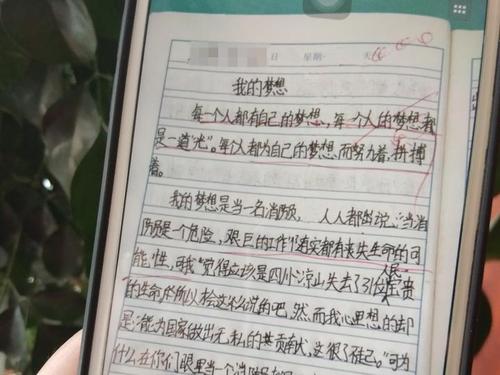 日 星期 天
我的梦想
每一个人都有自己的梦想，每个人的梦想都
是一道“光”。每个人都为自己的梦想而努力着，拼搏
着。
我的梦想是当一名消防员， 人人都说，“当消
防员是一个危险，艰巨的工作”确实都有丧失生命的可
能性，可我觉得应该是四川凉山失去了31位人民宝贵
的生命才所以会这么说的吧，然而我心里想的却
是：“能为国家做出无私的共贡献，这很了不起。”可为
什么在你们眼里当一个消防